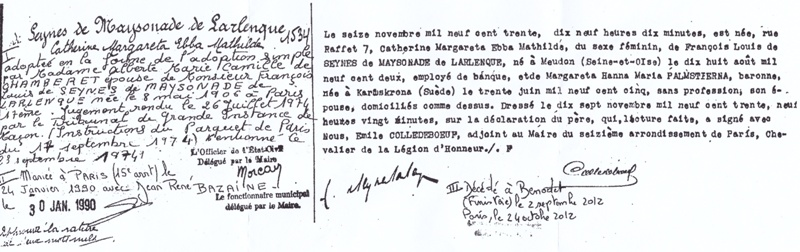 Seynes de Maysonade de Larlenque
Catherine Margareta Ebba Mathilde 1534
I adoptée en la forme de l'adoption simple
par Madame Alberte Marie Camille de
CHAMBERET épouse de Monsieur François
Louis de SEYNES de MAYSONADE de
LARLENQUE née le 8 mai 1906 à Paris
Jugement rendu le 26 juillet 1974
par le Tribunal de Grande Instance de
(Instructions du Parquet de Paris
du 17 septembre 1974) Mentionné le
23 septembre 1974
L'Officier de l'État Civil
Délégué par le Maire
II Mariée à PARIS (15e arrt) le
24 Janvier 1990 avec Jean René BAZAINE
le 30 JAN. 1990
Le fonctionnaire municipal
délégué par le Maire.
Le seize novembre mil neuf cent trente, dix neuf heures dix minutes, est née, rue
Raffet 7, Catherine Margareta Ebba Mathilde, du sexe féminin, de François Louis de
SEYNES de MAYSONADE de LARLENQUE, né à Meudon (Seine-et-Oise) le dix huit août mil
neuf cent deux, employé de banque, etde Margareta Hanna Maria PALMSTIERNA, baronne,
née à Karlskrona (Suède) le trente juin mil neuf cent cinq, sans profession; son é-
pouse, domiciliés comme dessus. Dressé le dix sept novembre mil neuf cent trente, neuf
heures vingt minutes, sur la déclaration du père, qui,lecture faite, a signé avec
Nous, Emile COLLEDEBOEUF, adjoint au Maire du seizième arrondissement de Paris, Che-
valier de la Légion d'Honneur./. P
III Décédé à Benodet
(Finistère) le 2 septembre 2012
Paris, le 24 octobre 2012